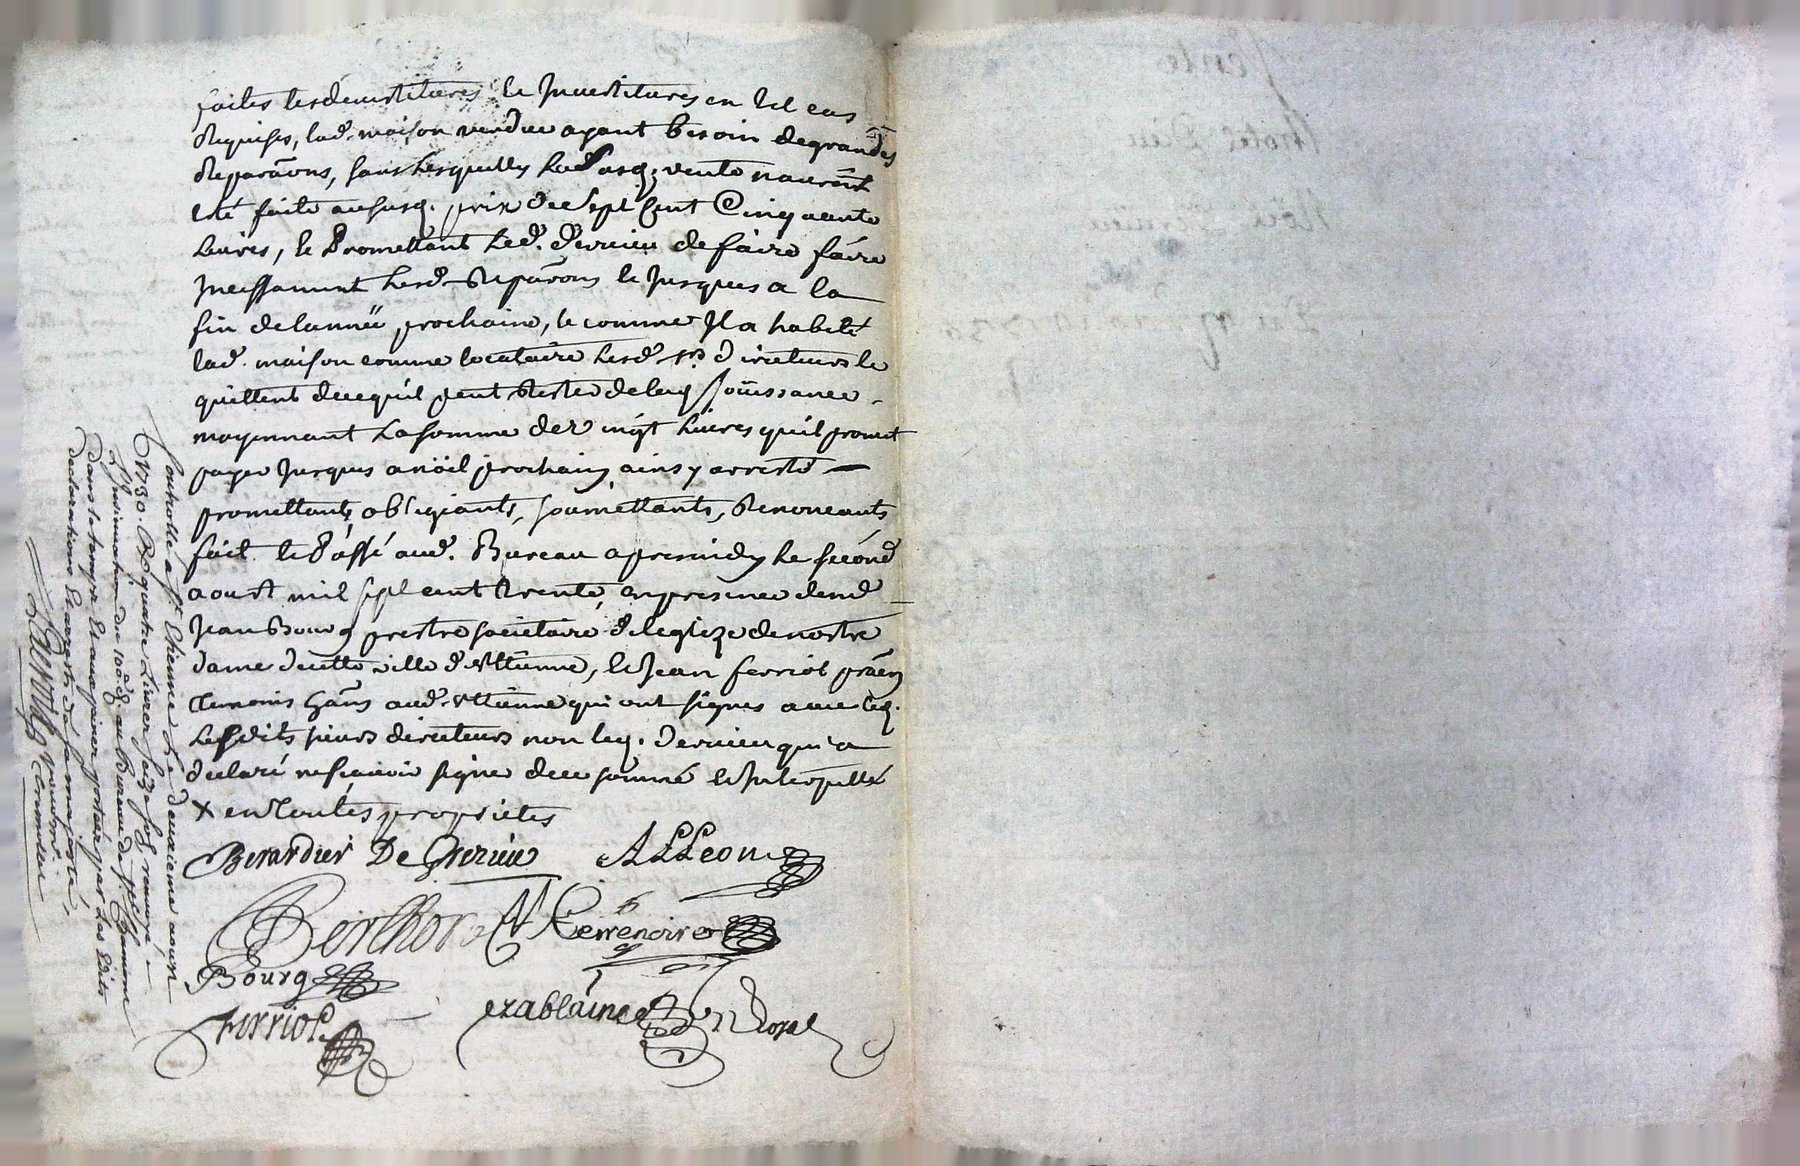 faites les devestitures le Investitures en tel cas
Requises, lad. maison vendue ayant besoin de grandes
Reparaons, sans lesquelles lad. susd. vente nauroit
été faite au susd. prix de Sept Cent Cinquante
Livres, le Promettant led. dervieu de faire faire
Incessament lesd. Reparaons le Jusques a la
fin de lannéé prochaine, le comme Il a habité
lad. maison comme locataire lesd. srs directeurs le
quittent de ce quil peut Rester de leur Joüissance
moyennant la somme de vingt Livres quil promet
payer Jusques a nöël prochain, ainsy arresté
promettants, obligeants, soumettants, Renonceants
fait le Passé aud. Bureau apresmidy le second
aoust mil sept cent trente, en presence de md
Jean Bourg prestre societaire de leglize de nostre
dame de cette ville de st ettienne, le Jean ferriot prãen
temoins hãns aud. st ettienne qui ont signés avec
lesdits sieurs directeurs non led. dervieu qui a
declaré ne scavoir signer de ce sommé le Interpellé
x en toutes proprietes
Berardier De Grezieu
ALLeon
Terrenoire
Bourg
ezablaine
ferriot
Controllé a st Etienne Le deuxieme aoust
1730. Rx quatre Livres seize sols renvoyé
L'Insinuation du 100e d. au Bureau de st Chaumond
dans le temps Et aux peines portées par Les Edits
declarations Et arrests de sa majesté,